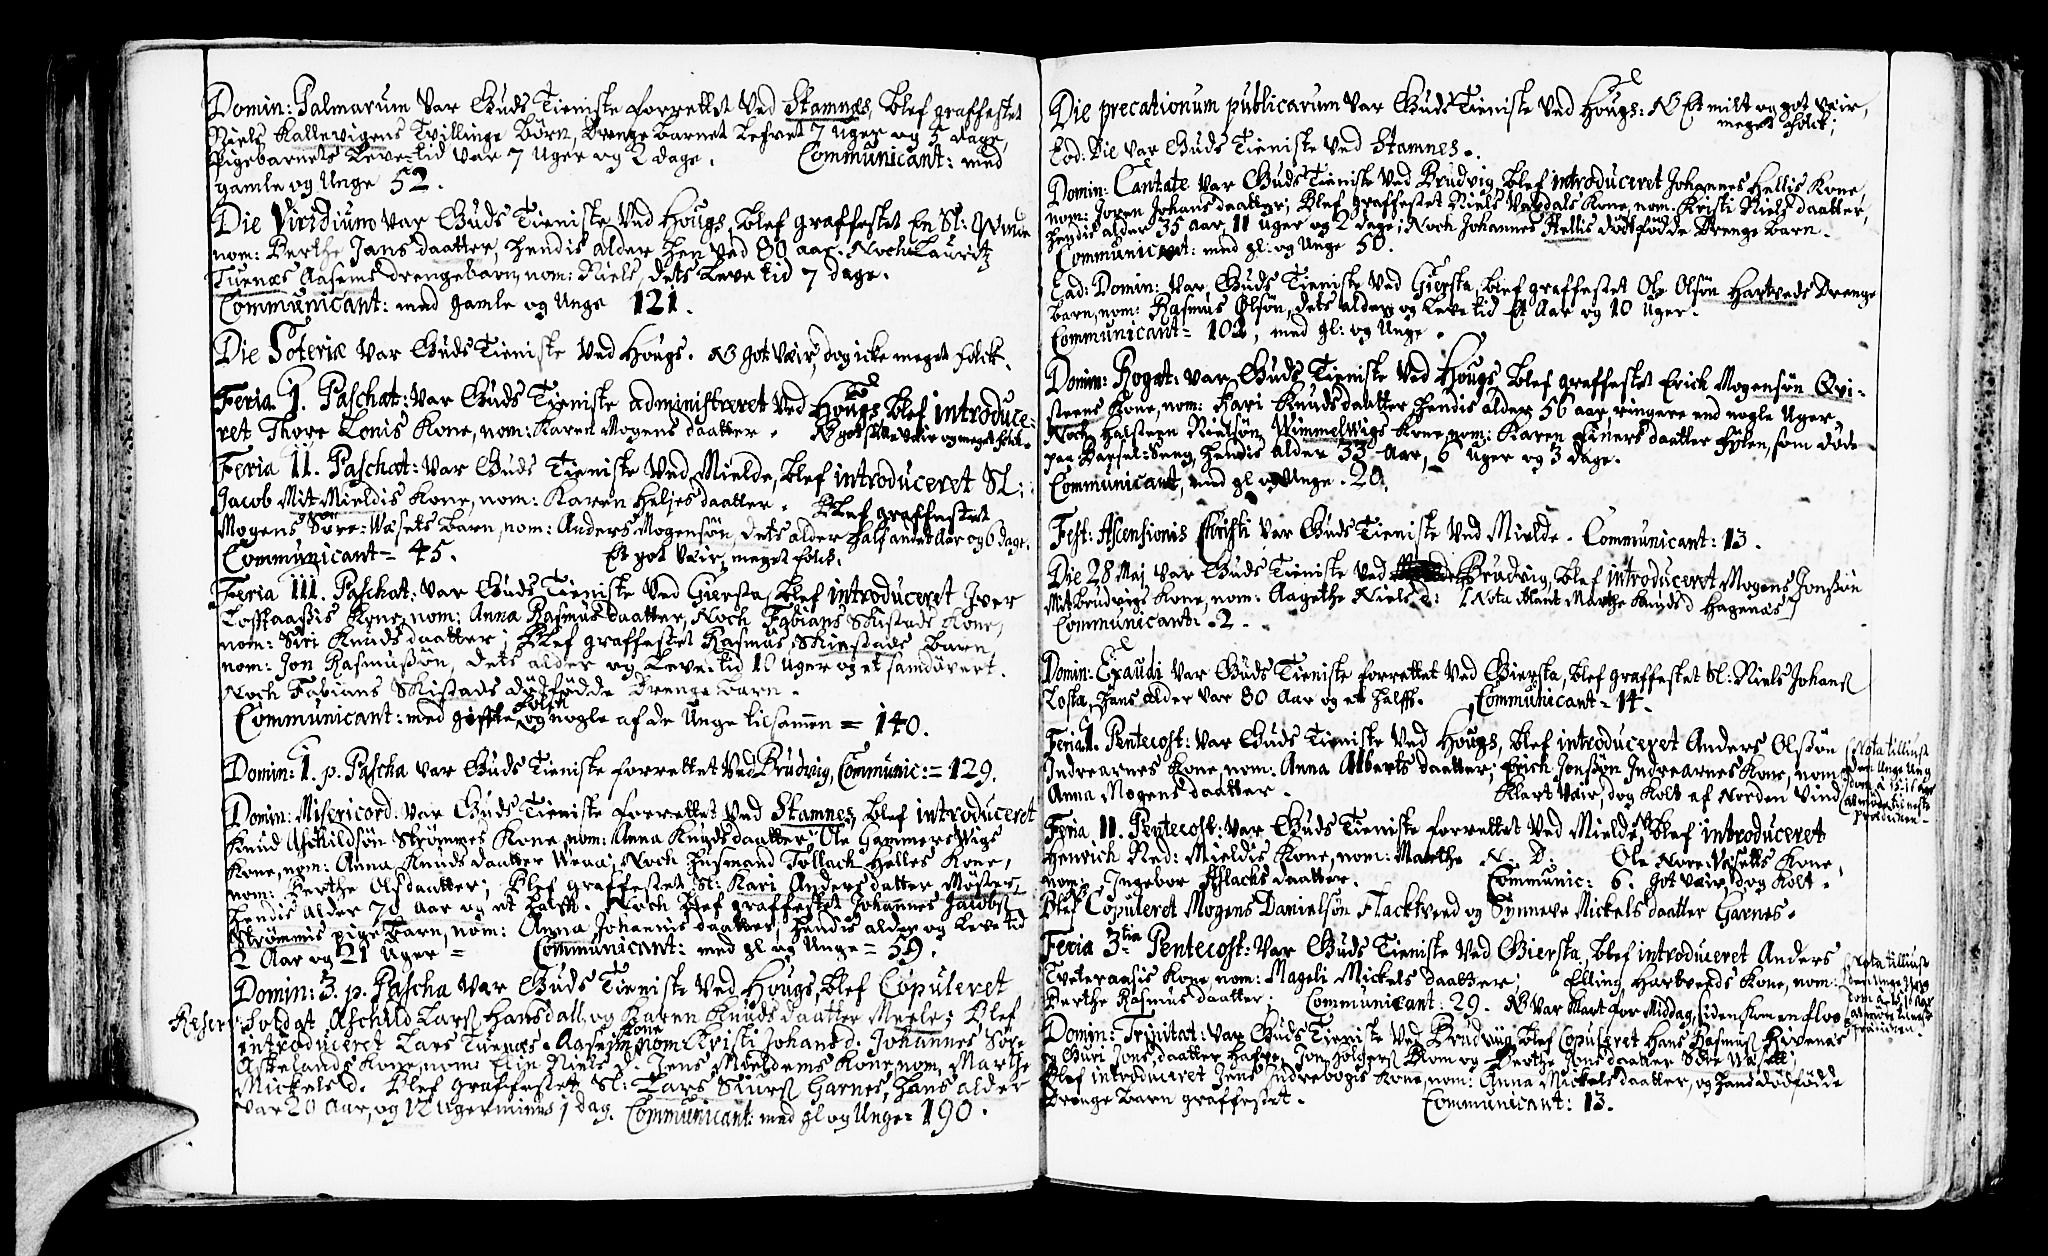 Domin: Palmarum var Guds Tieniste forrettet ved Stamnes, blef graffestet
Niels Kallevigens Tvillinge børn, Drenge barnet lefvet 7 Uger og 5 dage,
Pigebarnets Leve-tid var 7 Uger og 2 dage. Communicant: med
gamle og Unge 52.
Die Viridium var Guds Tieniste ved Hougs, blef graffestet En Sl:
nom: Berthe Jans daatter, hendis alder hen ved 80 aar. Noch Lauritz
Tuenæs Aasens drengebarn, nom: Niels, dets Leve tid 7 dage.
Communicant: med gamle og Unge 121.
Die Soteriæ var Guds Tieniste ved Hougs. NB got Væir, dog icke meget folck.
Feria I. Paschat: var Guds Tieniste administreret ved Hougs, blef introduce-
ret Thore Lonis Kone, nom: Karen Mogens daatter. NB got væir og meget folck.
Feria II. Paschat: var Guds Tieniste ved Mielde, blef introduceret Sl:
Jacob Mit-Mieldis Kone, nom: Karen Heljes daatter. Blef graffestet
Mogens Søre-Wasets barn, nom: Anders Mogensøn, dets alder half andet Aar og 6 dage.
Communicant = 45. Et got Væir, meget folck.
Feria III. Paschat: var Guds Tieniste ved Giersta, blef introduceret Iver
Kone nom: Anna Rasmus daatter, Noch Fabians Skistads Kone,
nom: Siri Knuds daatter; Blef graffestet Rasmus Skiestads barn,
nom: Jon Rasmussøn, dets alder og Leve-tid 10 Uger og et
Noch Fabians Skistads dødfødde Drenge barn.
Communicant: med gifte folck og nogle af de Unge tilsamen = 140.
Domin: I. p. Pascha var Guds Tieniste forrettet ved Brudvig, Communic: = 129.
Domin: Misericord: var Guds Tieniste forrettet ved Stamnes, blef introduceret
Knud Aschildsøn Strømmes Kone, nom: Anna Knuds daatter, Ole Gammersvigs
Kone, nom: Anna Knuds daatter Noch Husmand Tollach Helles Kone,
nom: Berthe Ols daatter; Blef graffestet Sl: Kari Anders datter
hendis Alder 70 Aar og et halft. Noch blef graffestet Johannes Jacobs
Strømmis pige barn, nom: Anna Johannis daatter, hendis alder og Leve tid
2 Aar og 21 Uger = Communicant: med gl og Unge = 59.
Domin: 3. p. Pascha var Guds Tieniste ved Hougs, blef Copuleret
Reserv: Soldat Aschild Lars Hansdall og Karen Knuds daatter Blef
introduceret Lars Tuenæs Aasens Kone nom Kristi Johans d. Johannes Søre
Askelands Kone, nom: Elin Niels d. Jens Mieldems Kone, nom, Marthe
Mickels d. Blef graffestet Sl: Lars Siurs Garnes, hans alder
var 20 Aar, og 12 uger minus 1 dag. Communicant: med gl og Unge = 190.
Die precationum publicarum var Guds Tieniste ved Hougs: NB Et milt og got væir,
meget folck;
Eod: Die var Guds Tieniste ved Stamnes.
Domin: Cantate var Guds Tieniste ved Brudvig, blef introduceret Johannes Hellis Kone,
nom: Joren Johans daatter; Blef graffestet Niels Vaxdals Kone, nom. Kristi Niels daatter,
hendis alder 35 aar 11 Uger og 2 dage; Noch Johannes Hellis dødfødde Drenge barn.
Communicant: med gl: og Unge 50.
Ead: Domin: var Guds Tieniste ved Giersta, blef graffestet Ole Olsøn Hartveds Drenge
barn, nom: Rasmus Olsøn, dets alder og Leve tid Et Aar og 10 Uger.
Communicant = 102, med gl: og Unge.
Domin: Rogat: var Guds Tieniste ved Hougs, blef graffestet Erick Mogensøn Qvi-
steens Kone, nom: Kari Knuds daatter, hendis alder 56 aar ringere end nogle Uger,
Noch Halsteen Nielsøn Wimmelvigs Kone, nom: Karen Einers daatter som døde
paa Barsel-Seng, hendis alder 33 Aar, 6 Uger og 3 dage.
Communicant, med gl og Unge. 20.
Fest: Ascensionis Christi var Guds Tieniste ved Mielde. Communicant: 13.
Die 28 Maj var Guds Tieniste ved Brudvig, blef introduceret Mogens Jonsøn
Mitbrudvigs Kone, nom: Aagethe Niels d: [Nota iblant Marthe Knuds d Hagenæs]
Communicant: 2.
Domin: Exaudi var Guds Tieniste forrettet ved Giersta, blef graffestet Sl: Niels Johans
Losta, hans alder var 80 Aar og et halft. Communicant = 14.
Feria I. Pentecost: var Guds Tieniste ved Hougs, blef introduceret Anders Olssøn
Indrearnes Kone, nom: Anna Alberts daatter; Erich Jonssøn Indrearnes Kone, nom:
Anna Mogens daatter. Klart Vær, dog kolt af Norden Vind
Feria II. Pentecost: var Guds Tieniste forrettet ved Mielde, blef introduceret
Henrich Ned: Mieldis Kone, nom: Marthe N. D: Ole Nore-Vasetts Kone,
nom: Ingebor Aslacks daatter. Communic: 6. got væir, dog kolt.
Blef Copuleret Mogens Danielsøn Flacktved og Synneve Mickels daatter Garnes.
Feria 3tia Pentecost: var Guds Tieniste ved Giersta, blef introduceret Anders
Tveteraasis Kone, nom: Mageli Mickels daatter; Elling Hartveds Kone, nom:
Berthe Rasmus daatter; Communicant: 29. NB var klart for Middag, siden kom en
Domin: Trinitat: var Guds Tieniste ved Brudvig, blef Copuleret Hans Rasmus
og Guri Jons daatter Jon Holgers Blom og Berthe Jons daatter Søre Vasett;
Blef introduceret Jens Indrebogis Kone, nom: Anna Mickels daatter, og hans dødfødde
Drenge barn graffestet. Communicant: 13.